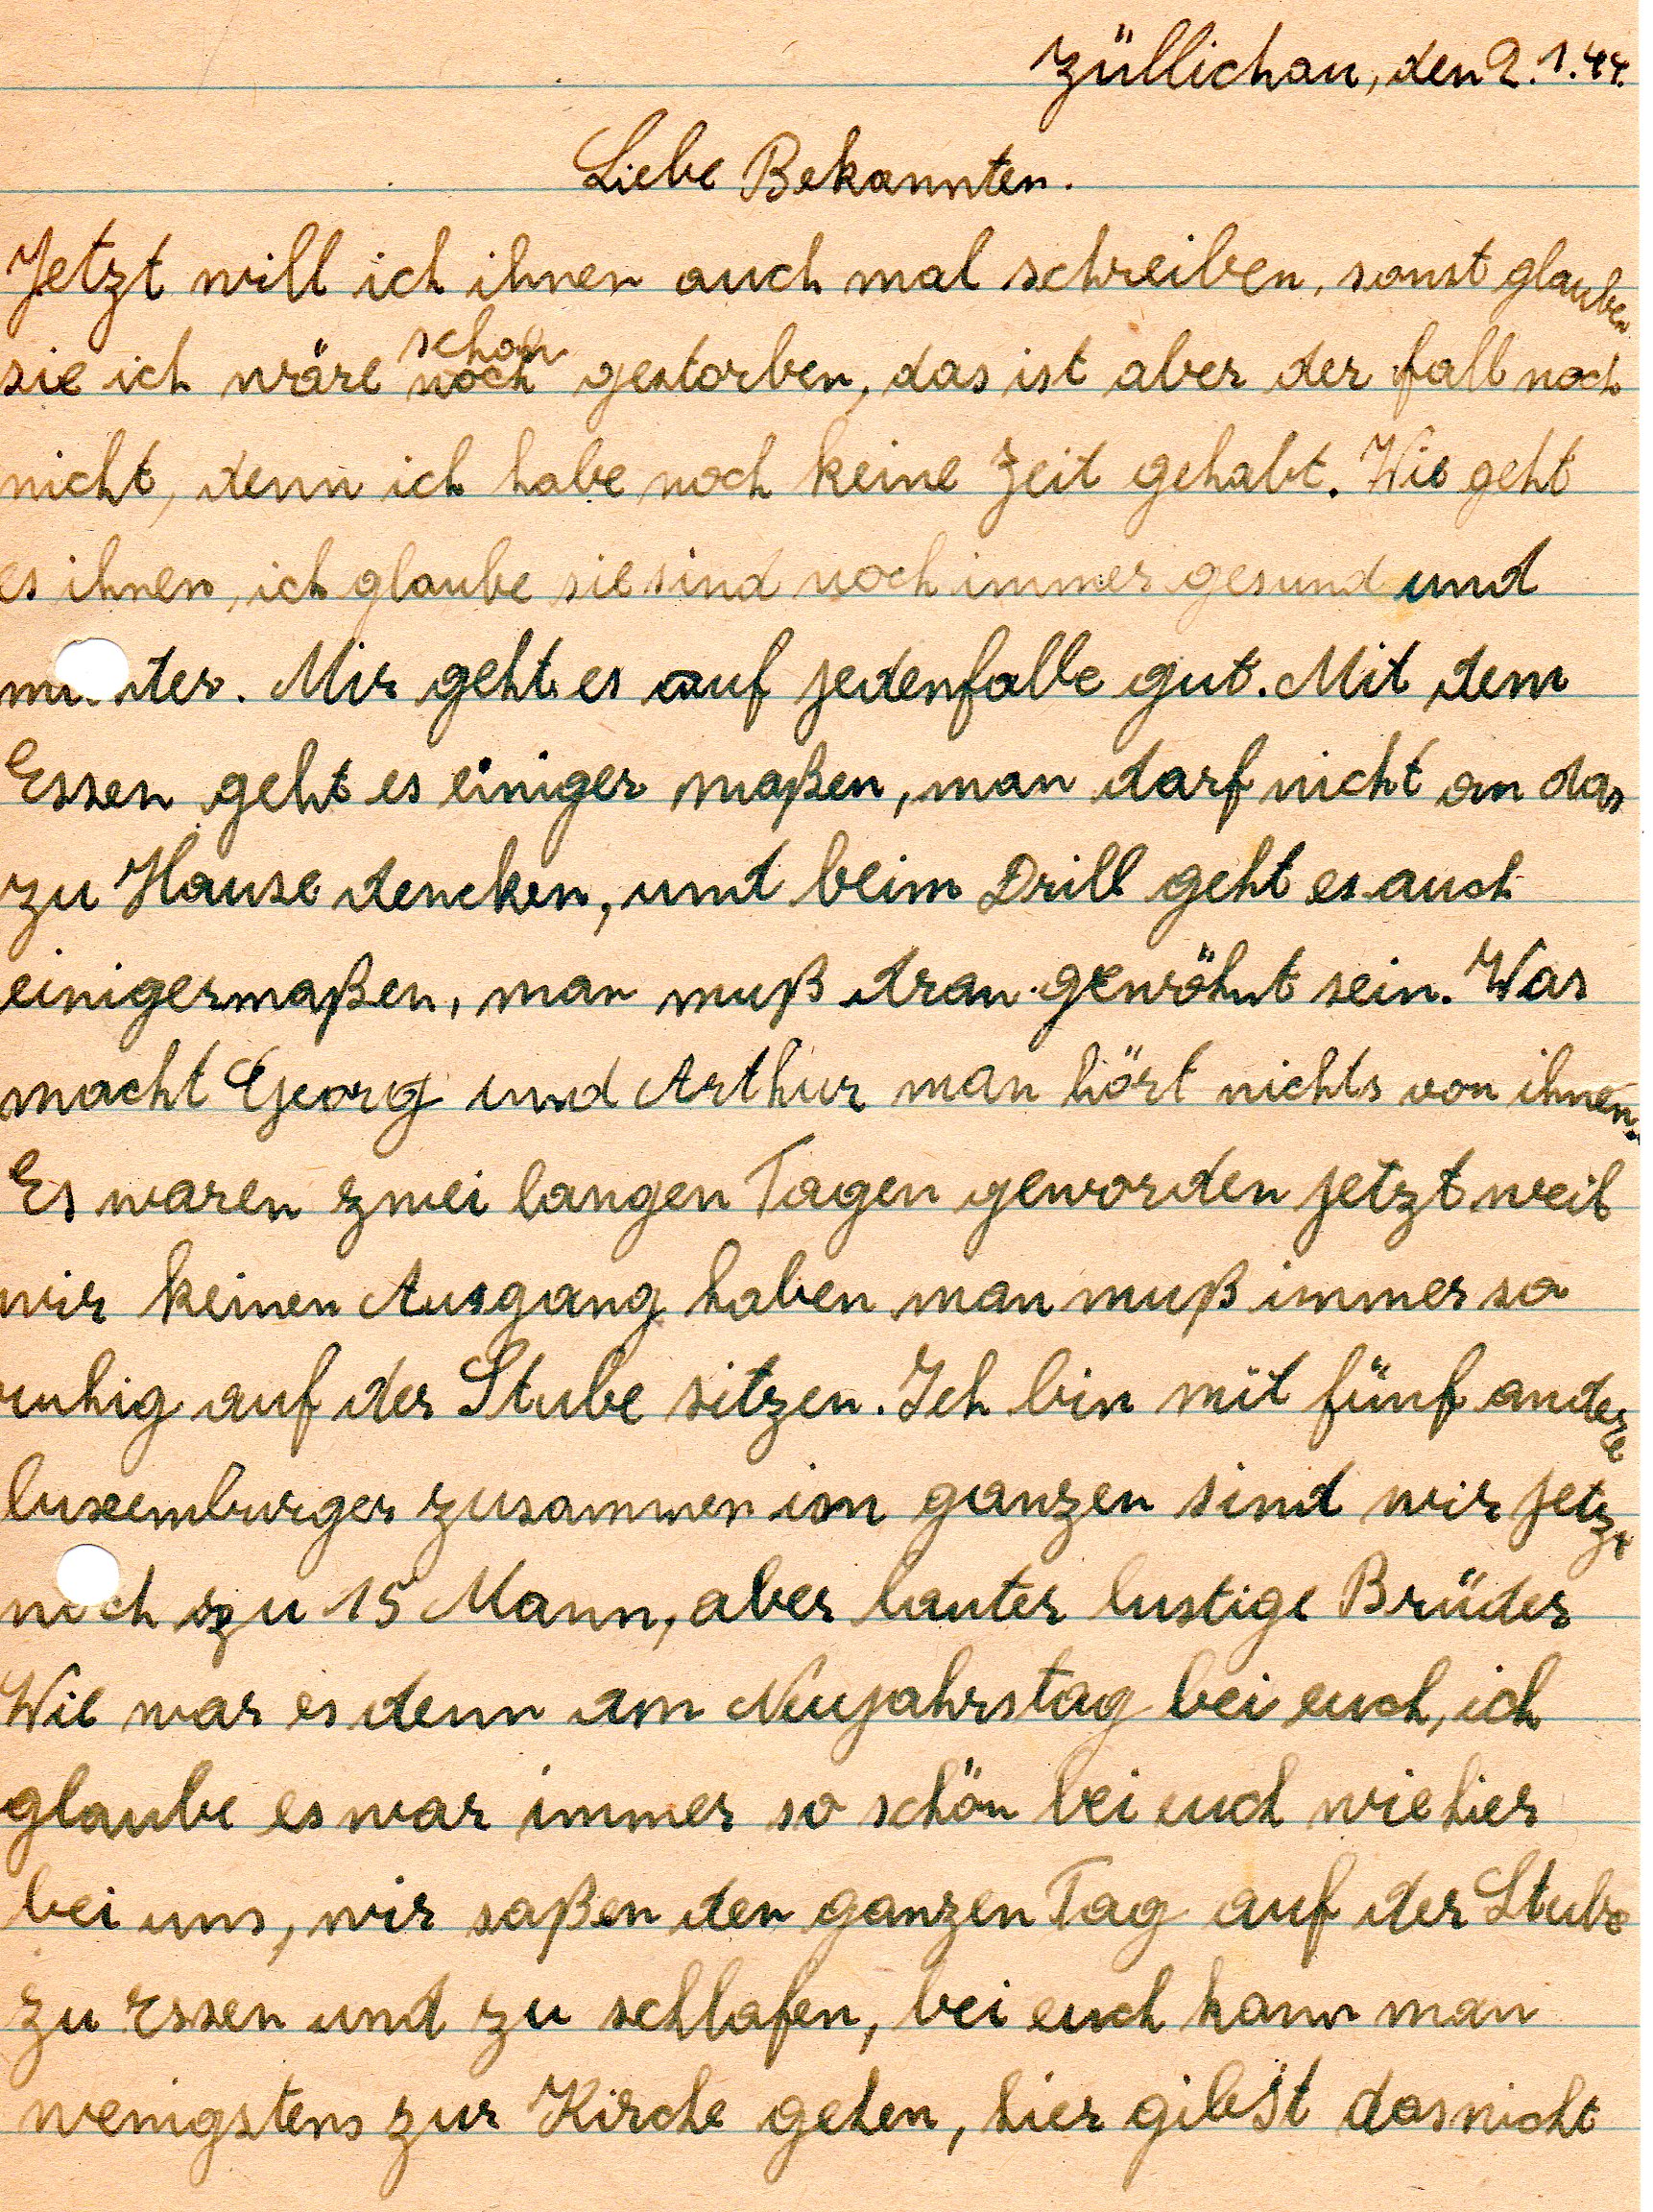 Züllichau, den 2.1.44.
Liebe Bekannten.
Jetzt will ich ihnen auch mal schreiben, sonst glauben
sie ich wäre schon noch gestorben, das ist aber der fall noch
nicht, denn ich habe noch keine Zeit gehabt. Wie geht
es ihnen, ich glaube sie sind noch immer gesund und
mu ter. Mir geht es auf jedenfalle gut. Mit dem
Essen geht es einiger maßen, man darf nicht an das
zu Hause dencken, und beim Drill geht es auch
einigermaßen, man muß dran gewöhnt sein. Was
macht Georg und Arthur man hört nichts von ihnen.
Es waren zwei langen Tagen geworden jetzt weil
wir keinen Ausgang haben man muß immer so
ruhig auf der Stube sitzen. Ich bin mit fünf andere
luxemburger zusammen im ganzen sind wir jetzt
noch zu 15 Mann, aber lauter lustige Brüder
Wie war es denn am Neujahrstag bei euch, ich
glaube es war immer so schön bei euch wie hier
bei uns, wir saßen den ganzen Tag auf der Stube
zu Essen und zu schlafen, bei euch kann man
wenigstens zur Kirche gehen, hier gibst das nicht